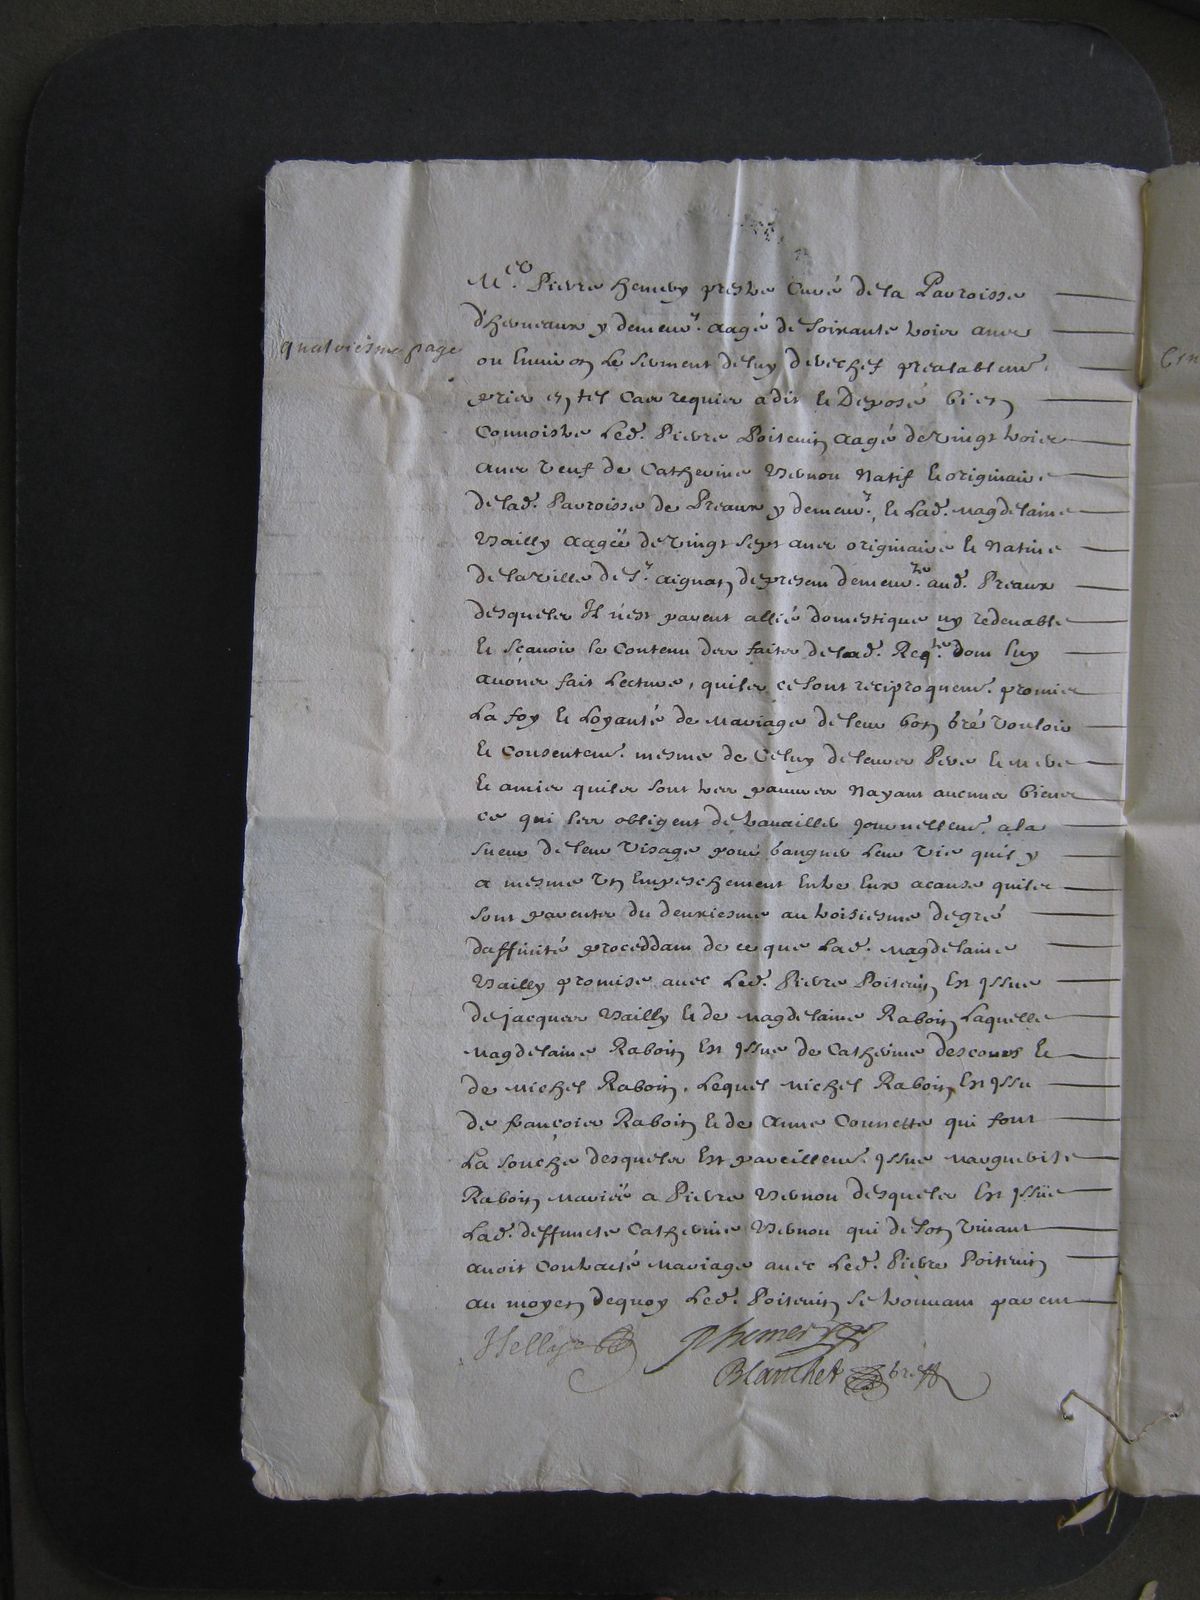 quatriesme page
M.re Pierre hemery prestre Curé de la Parroisse
d'herneaux y demeur.t aagé de soixante trois ans
ou Enuiron Le serment de luy derechef prealablem.t
pris en tel Cas requis a dit et Deposé bien
Connoistre Led. Pierre Poiteuin aagé de vingt trois
ans veuf de Catherine Vernou Natif et originaire
de lad. Parroisse de Preaux y demeur.t, et Lad. Magdelaine
Vailly aagëe de vingt sept ans originaire et Natiue
de la ville de S.t aignan de present demeur.te aud. Preaux
desquels Il n'est parent allié domestique ny redeuable
et sçauoir le Contenu des faits de lad. Req.te dont luy
auons fait Lecture, quils se sont reciproquem.t promis
La foy et Loyauté de Mariage de leur bon gré vouloir
et Consentem.t mesme de Celuy de leurs Pere et mere
et amis quils sont tres pauures Nayant aucuns biens
ce qui les obligent de trauailler journellem.t a la
sueur de leur visage pour gangner Leur vie quil y
a mesme vn Empeschement Entre Eux acause quils
sont parents du deuxiesme au troisiesme degré
daffinité proceddant de ce que Lad. Magdelaine
Vailly promise auec Led. Pierre Poiteuin Est Issue
de Jacques Vailly et de Magdelaine Raboin Laquelle
Magdelaine Raboin Est Issue de Catherine descours et
de Michel Raboin, Lequel Michel Raboin Est Issu
de françois Raboin et de Anne Connette qui font
La souche desquels Est pareillem.t Issue Marguerite
Raboin Mariëe a Pierre Vernou desquels Est Issüe
Lad. deffuncte Catherine Vernou qui de son viuant
auoit Contracté Mariage auec Led. Pierre Poiteuin
au moyen dequoy Led. Poiteuin se trouuant parent
P hemery
Blanchet greff